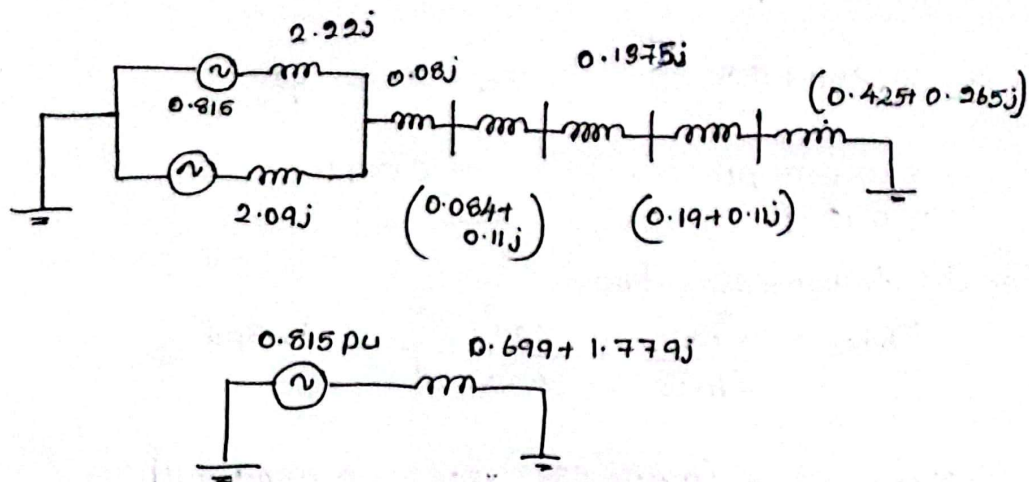 2.22j
0.08j
0.1375j
(0.425+ 0.265j)
0.815
2.09j
(0.084+
0.11j)
(0.19+0.11j)
0.815 pu
0.699+ 1.779j